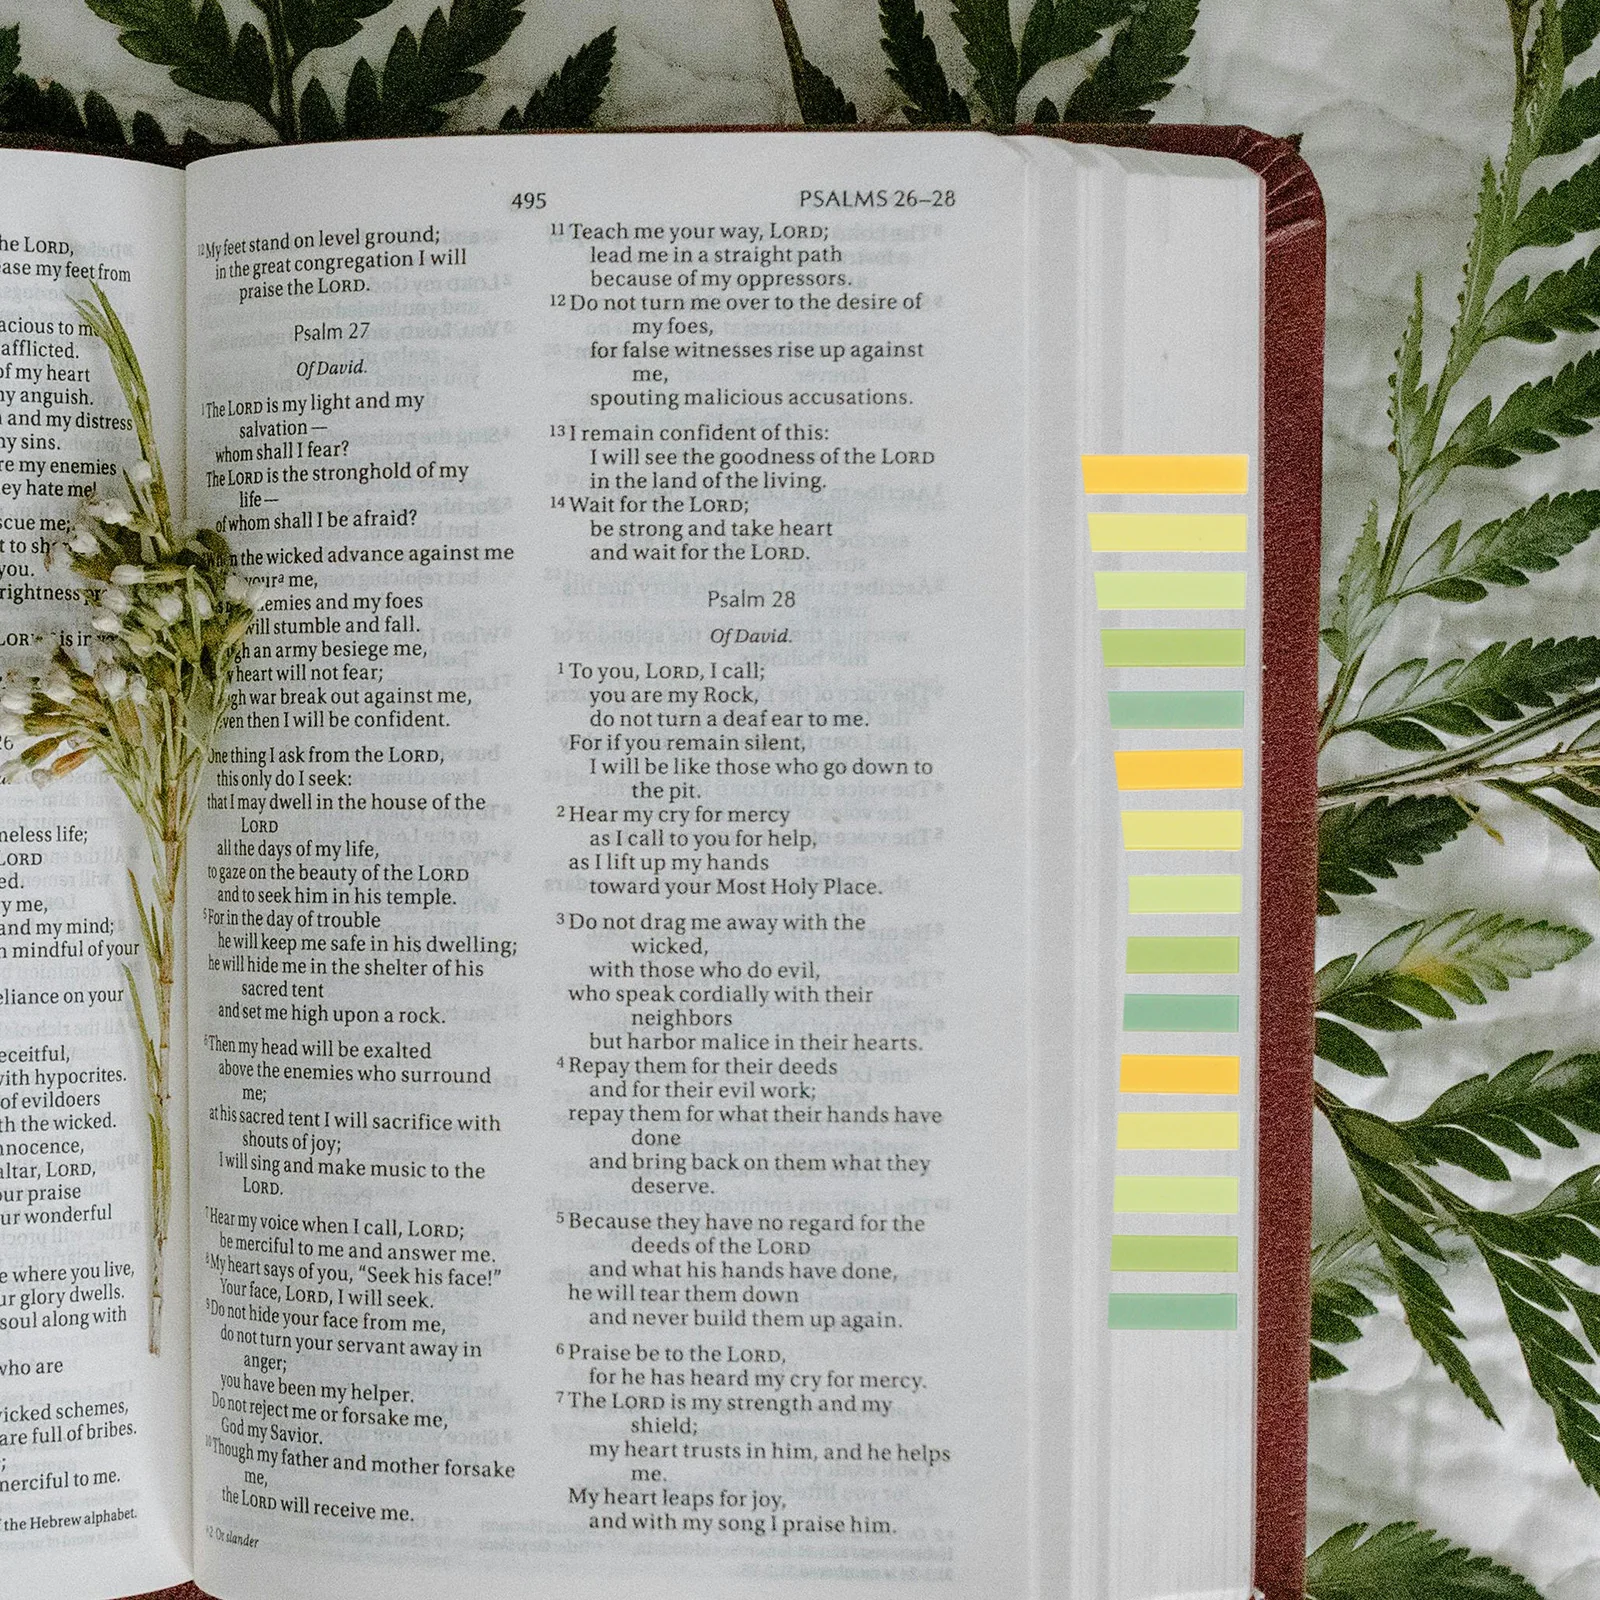 he LORD,
ease my feet from
acious to me
afflicted.
of my heart
my anguish.
and my distress
my sins.
re my enemies
ey hate me!
scue me;
t to
you.
rightness
LORD is in
26
meless life;
LORD
ed.
y me,
and my mind;
n mindful of your
eliance on your
eceitful,
with hypocrites.
of evildoers
th the wicked.
nnocence,
altar, LORD,
our praise
ur wonderful
e where you live,
ur glory dwells.
soul along with
who are
wicked schemes,
are full of bribes.
;
merciful to me.
f the Hebrew alphabet.
495
PSALMS 26–28
12 My feet stand on level ground;
in the great congregation I will
praise the LORD.
Psalm 27
Of David.
1 The LORD is my light and my
salvation—
whom shall I fear?
The LORD is the stronghold of my
life—
of whom shall I be afraid?
When the wicked advance against me
your a me,
emies and my foes
will stumble and fall.
gh an army besiege me,
heart will not fear;
gh war break out against me,
even then I will be confident.
One thing I ask from the LORD,
this only do I seek:
that I may dwell in the house of the
LORD
all the days of my life,
to gaze on the beauty of the LORD
and to seek him in his temple.
5 For in the day of trouble
he will keep me safe in his dwelling;
he will hide me in the shelter of his
sacred tent
and set me high upon a rock.
6 Then my head will be exalted
above the enemies who surround
me;
at his sacred tent I will sacrifice with
shouts of joy;
I will sing and make music to the
LORD.
7 Hear my voice when I call, LORD;
be merciful to me and answer me.
8 My heart says of you, “Seek his face!”
Your face, LORD, I will seek.
9 Do not hide your face from me,
do not turn your servant away in
anger;
you have been my helper.
Do not reject me or forsake me,
God my Savior.
10 Though my father and mother forsake
me,
the LORD will receive me.
a 2 Or slander
11 Teach me your way, LORD;
lead me in a straight path
because of my oppressors.
12 Do not turn me over to the desire of
my foes,
for false witnesses rise up against
me,
spouting malicious accusations.
13 I remain confident of this:
I will see the goodness of the LORD
in the land of the living.
14 Wait for the LORD;
be strong and take heart
and wait for the LORD.
Psalm 28
Of David.
1 To you, LORD, I call;
you are my Rock,
do not turn a deaf ear to me.
For if you remain silent,
I will be like those who go down to
the pit.
2 Hear my cry for mercy
as I call to you for help,
as I lift up my hands
toward your Most Holy Place.
3 Do not drag me away with the
wicked,
with those who do evil,
who speak cordially with their
neighbors
but harbor malice in their hearts.
4 Repay them for their deeds
and for their evil work;
repay them for what their hands have
done
and bring back on them what they
deserve.
5 Because they have no regard for the
deeds of the LORD
and what his hands have done,
he will tear them down
and never build them up again.
6 Praise be to the LORD,
for he has heard my cry for mercy.
7 The LORD is my strength and my
shield;
my heart trusts in him, and he helps
me.
My heart leaps for joy,
and with my song I praise him.